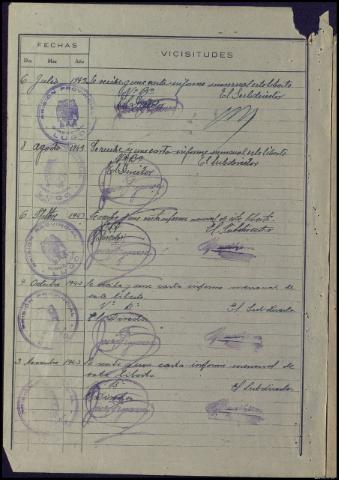 FECHAS
VICISITUDES
Día Mes Año
6 Julio 1943 Se recibe y une carta informe mensual este liberto
Vº Bº El Subdirector
El Director
PRISIÓN PROVINCIAL
LUGO
8 agosto 1943 Se recibe y une carta informe mensual este liberto
Vº Bº El Subdirector
El Director
LUGO
6 1943 Se recibe y une carta informe mensual de este liberto
El Subdirector
Director
PRISIÓN PROVINCIAL
LUGO
9 Octubre 1943 Se recibe y une carta informe mensual de
este liberto
Vº Bº El Subdirector
El Director
PRISIÓN PROVINCIAL
3 Noviembre 1943 Se recibe y une carta informe mensual de
este liberto
Bº El Subdirector
El Director